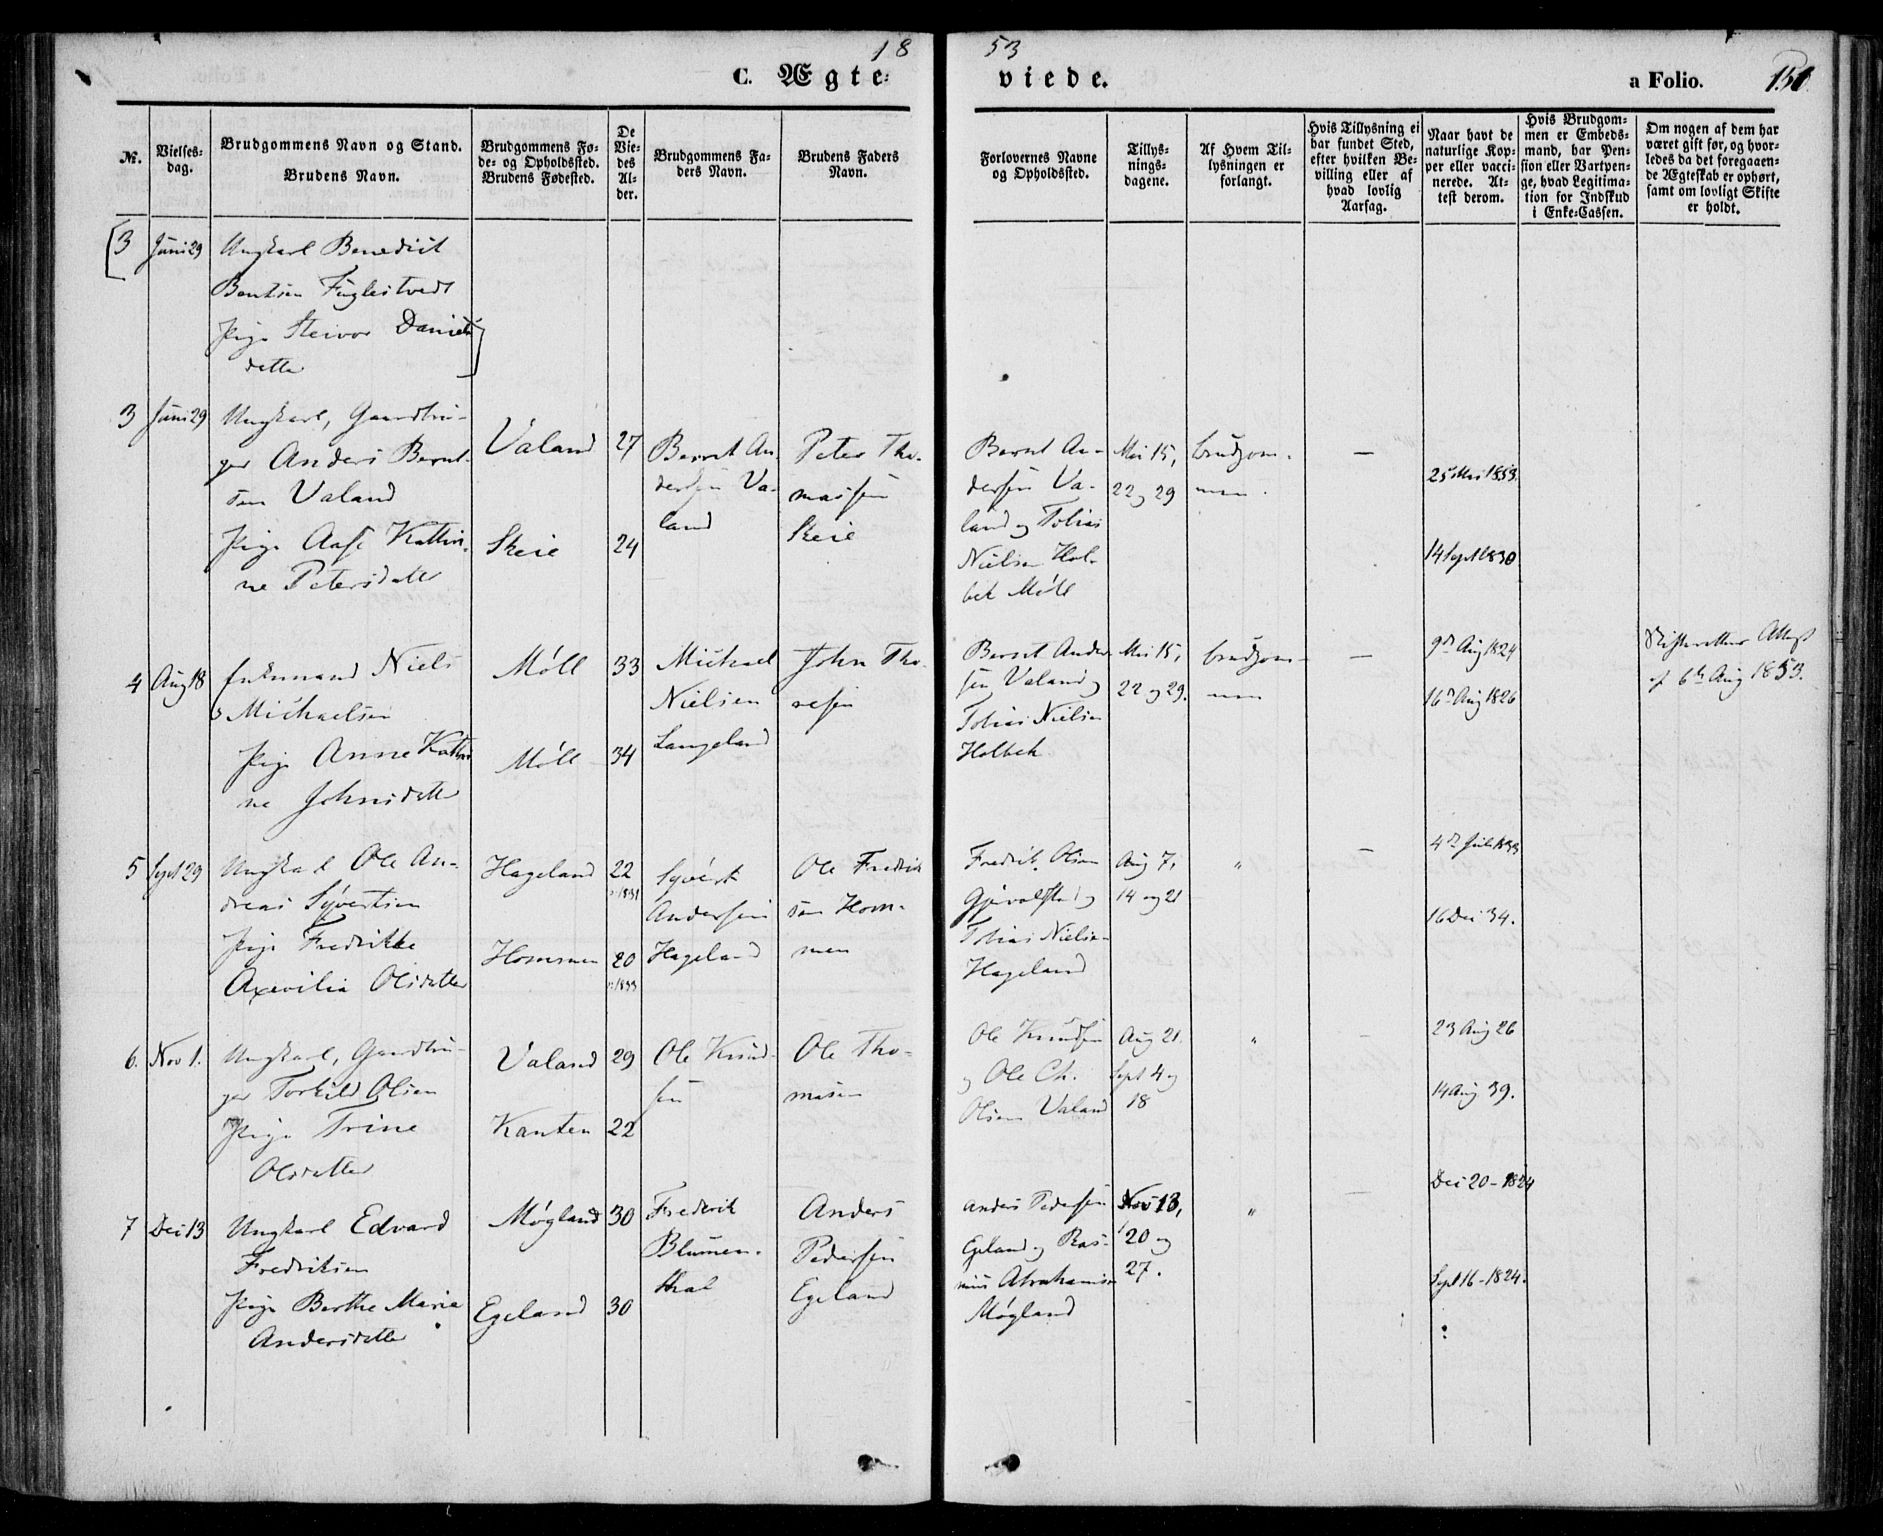 1853
C. Ægteviede.
a Folio. 151.
Nr.
Vielses-
dag.
Brudgommens Navn og Stand.
Brudens Navn.
Brudgommens Fø-
de- og Opholdssted.
Brudens Fødested.
De
Vie-
des
Al-
der.
Brudgommens Fa-
ders Navn.
Brudens Faders
Navn.
Forlovernes Navne
og Opholdssted.
Tillys-
nings-
dagene.
Af Hvem Til-
lysningen er
forlangt.
Hvis Tillysning ei
har fundet Sted,
efter hvilken Be-
villing eller af
hvad lovlig
Aarsag.
Naar havt de
naturlige Kop-
per eller vacci-
nerede. At-
test derom.
Hvis Brudgom-
men er Embeds-
mand, har Pen-
sion eller Vartpen-
ge, hvad Legitima-
tion for Indskud
i Enke-Cassen.
Om nogen af dem har
været gift før, og hvor-
ledes da det foregaaen-
de Ægteskab er ophørt,
samt om lovligt Skifte
er holdt.
[3 Juni 29 Ungkarl Benedict
Bentsen Fuglestvedt
Pige Steivor Daniels
datter]
3 Juni 29 Ungkarl, Gaardbru-
ger Anders Bernt-
sen Valand
Pige Aase Kathri-
ne Petersdatter
Valand 27
Skeie 24
Bernt An-
dersen Va-
land
Peter Tho-
massen
Skeie
Bernt An-
dersen Va-
land og Tobias
Nielsen Hol-
bek Møll
Mai 15,
22 og 29
brudgom-
men.
—
25 Mai 1853.
14 Sept 1830
4 Aug 18 Enkemand Niels
Michaelsen
Pige Anne Kathri
ne Johnsdatter
Møll 33
Møll 34
Michael
Nielsen
Langeland
John Tho-
resen
Bernt Ander
sen Valand og
Tobias Nielsen
Holbek
Mai 15,
22 og 29.
brudgom-
men
—
9de Aug 1824
16de Aug 1826
Skifterettens Attest
af 6te Aug 1853.
5 Sept 29 Ungkarl Ole An-
dreas Syvertsen
Pige Fredrikke
Axevilia Olsdatter
Hageland 22
1831
Hommen 20
1833
Syvert
Andersen
Hageland
Ole Fredrik
sen Hom-
men
Fredrik Olsen
Gjervolstad og
Tobias Nielsen
Hageland
Aug 7,
14 og 21
"
—
4de Juli 1833
16 Dec 34.
6. Nov 1. Ungkarl, Gaardbru-
ger Torkild Olsen
Pige Trine
Olsdatter
Valand 29
Kanten 22
Ole Knud-
sen
Ole Tho-
masen
Ole Knudsen
og Ole Ch.
Olsen Valand
Aug 21.
Sept 4 og
18
"
—
23 Aug 26
14 Aug 39.
7 Dec 13 Ungkarl Edvard
Fredriksen
Pige Berthe Maria
Andersdatter
Møgland 30
Egeland 30
Frederik
Blumen-
thal
Anders
Pedersen
Egeland
Anders Pedersen
Egeland og Ras-
mus Abrahamsen
Møgland
Nov 13,
20 og
27.
"
—
Dec 20 - 1824
Sept 16 - 1824.